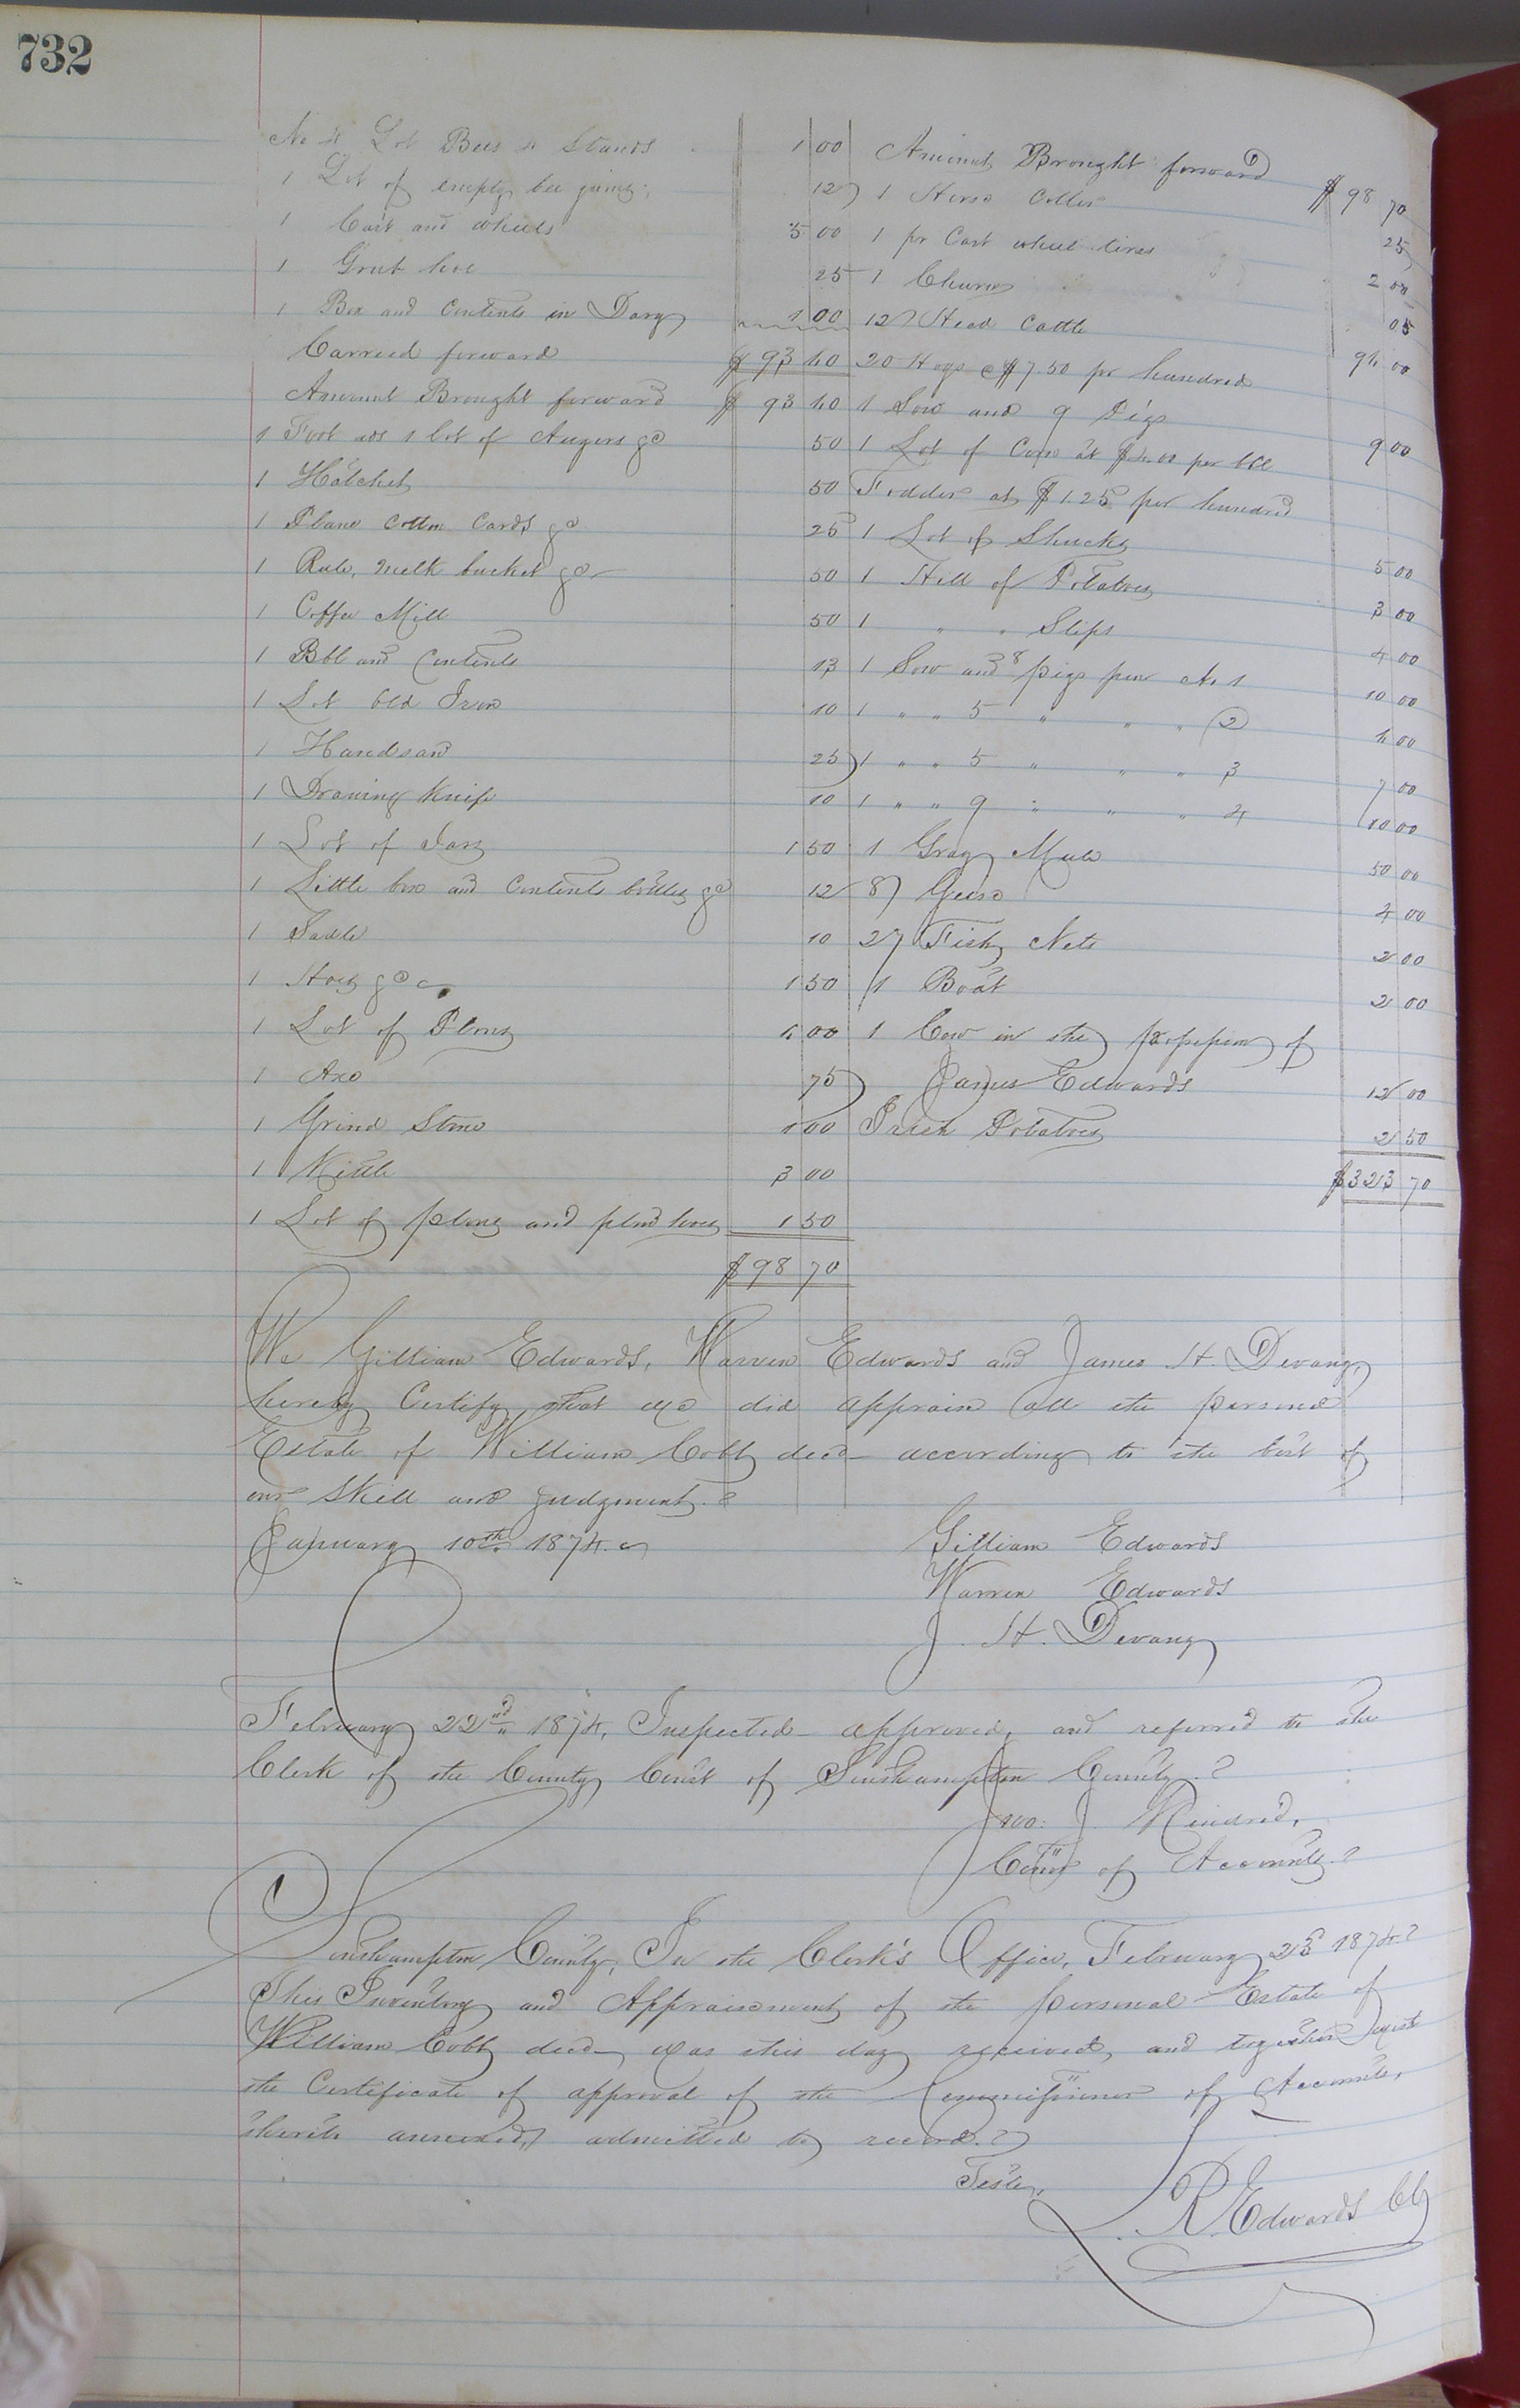 732
No 4 Lot Bees & Stands 1 00
1 Lot of empty bee gums 12
1 Cart and wheels 5 00
1 Grub hoe 25
1 Box and Contents in Dary 1 00
Carried forward $93 40
Amount Brought forward $93 40
1 Foot ads 1 lot of Augers &c 50
1 Hatchet 50
1 Plane Cotton Cards &c 25
1 Rule, milk bucket &c 50
1 Coffee Mill 50
1 Bbl and Contents 13
1 Lot Old Iron 10
1 Handsaw 25
1 Drawing Knife 10
1 Lot of Jars 1 50
1 Little box and Contents bottles &c 12
1 Sadle 10
1 Hoes &c 1 50
1 Lot of Plows 00
1 Axe 75
1 Grind Stone 1 00
1 Kittle 3 00
1 Lot of plows and plow hoes 1 50
$98 70
Amount Brought forward $98 70
1 Horse Coller 25
1 pr Cart wheel tires 2 00
1 Churn 05
12 Head Cattle 94 00
20 Hogs @ $7.50 pr hundred
1 Sow and 9 Pigs 9 00
1 Lot of Corn at $4.00 per bbl
Fodder at $1.25 per hundred
1 Lot of Shucks 5 00
1 Hill of Potatoes 3 00
1 " " Slips 4 00
1 Sow and 8 pigs pen No 1 10 00
1 " " 5 " " " 2 00
1 " " 5 " " " 3 7 00
1 " " 9 " " " 4 10 00
1 Gray Mule 50 00
8 Geese 4 00
27 Fish Nets 2 00
1 Boat 2 00
1 Cow in the possession of
James Edwards 12 00
Irish Potatoes 2 50
$323 70
We Gilliam Edwards, Warren Edwards and James H. Devany,
hereby Certify that we did appraise all the personal
Estate of William Cobb decd according to the best of
our Skill and judgment.
January 10th 1874.
Gilliam Edwards
Warren Edwards
J. H. Devany
February 22nd 1874, Inspected approved, and referred to the
Clerk of the County Court of Southampton County.
Jno: J. Kindred,
Comr of Accounts.
Southampton County, In the Clerk's Office, February 23 1874.
This Inventory and Appraisement of the personal Estate of
William Cobb decd was this day received, and together with
the Certificate of approval of the Commissioner of Accounts,
thereto annexed, admitted to record.
Teste,
L. R. Edwards Clk